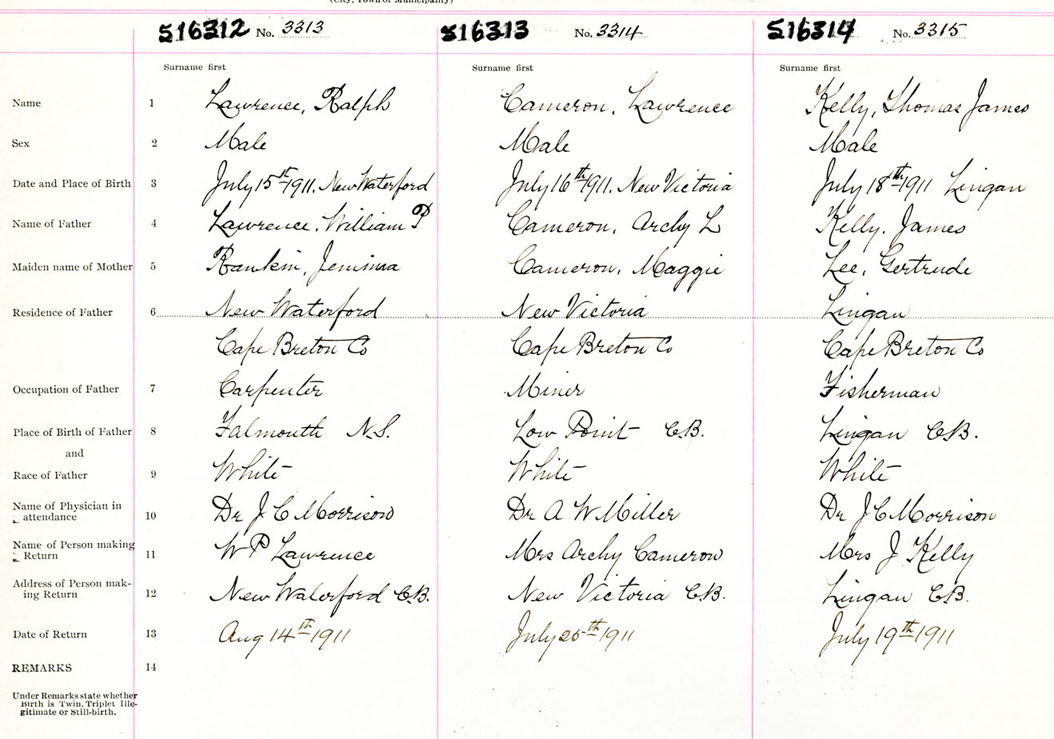 (City, Town or Municipality)
S16312 No. 3313 S16313 No. 3314 S16314 No. 3315
Surname first Surname first Surname first
Name 1 Lawrence, Ralph Cameron, Lawrence Kelly, Thomas James
Sex 2 Male Male Male
Date and Place of Birth 3 July 15st 1911. New Waterford July 16th 1911. New Victoria July 18th 1911 Lingan
Name of Father 4 Lawrence, William P Cameron, Archy L Kelly. James
Maiden name of Mother 5 Rankin, Jemima Cameron, Maggie Lee, Gertrude
Residence of Father 6 New Waterford New Victoria Lingan
Cape Breton Co Cape Breton Co Cape Breton Co
Occupation of Father 7 Carpenter Miner Fisherman
Place of Birth of Father 8 Falmouth N.S. Low Point C.B. Lingan C.B.
and
Race of Father 9 White White White
Name of Physician in
attendance 10 Dr J C Morrison Dr A W Miller Dr J C Morrison
Name of Person making
Return 11 W P Lawrence Mrs Archy Cameron Mrs J Kelly
Address of Person mak-
ing Return 12 New Waterford C.B. New Victoria C.B. Lingan C.B.
Date of Return 13 Aug 14th 1911 July 25th 1911 July 19th 1911
REMARKS 14
Under Remarks state whether
Birth is Twin, Triplet Ille-
gitimate or Still-birth.